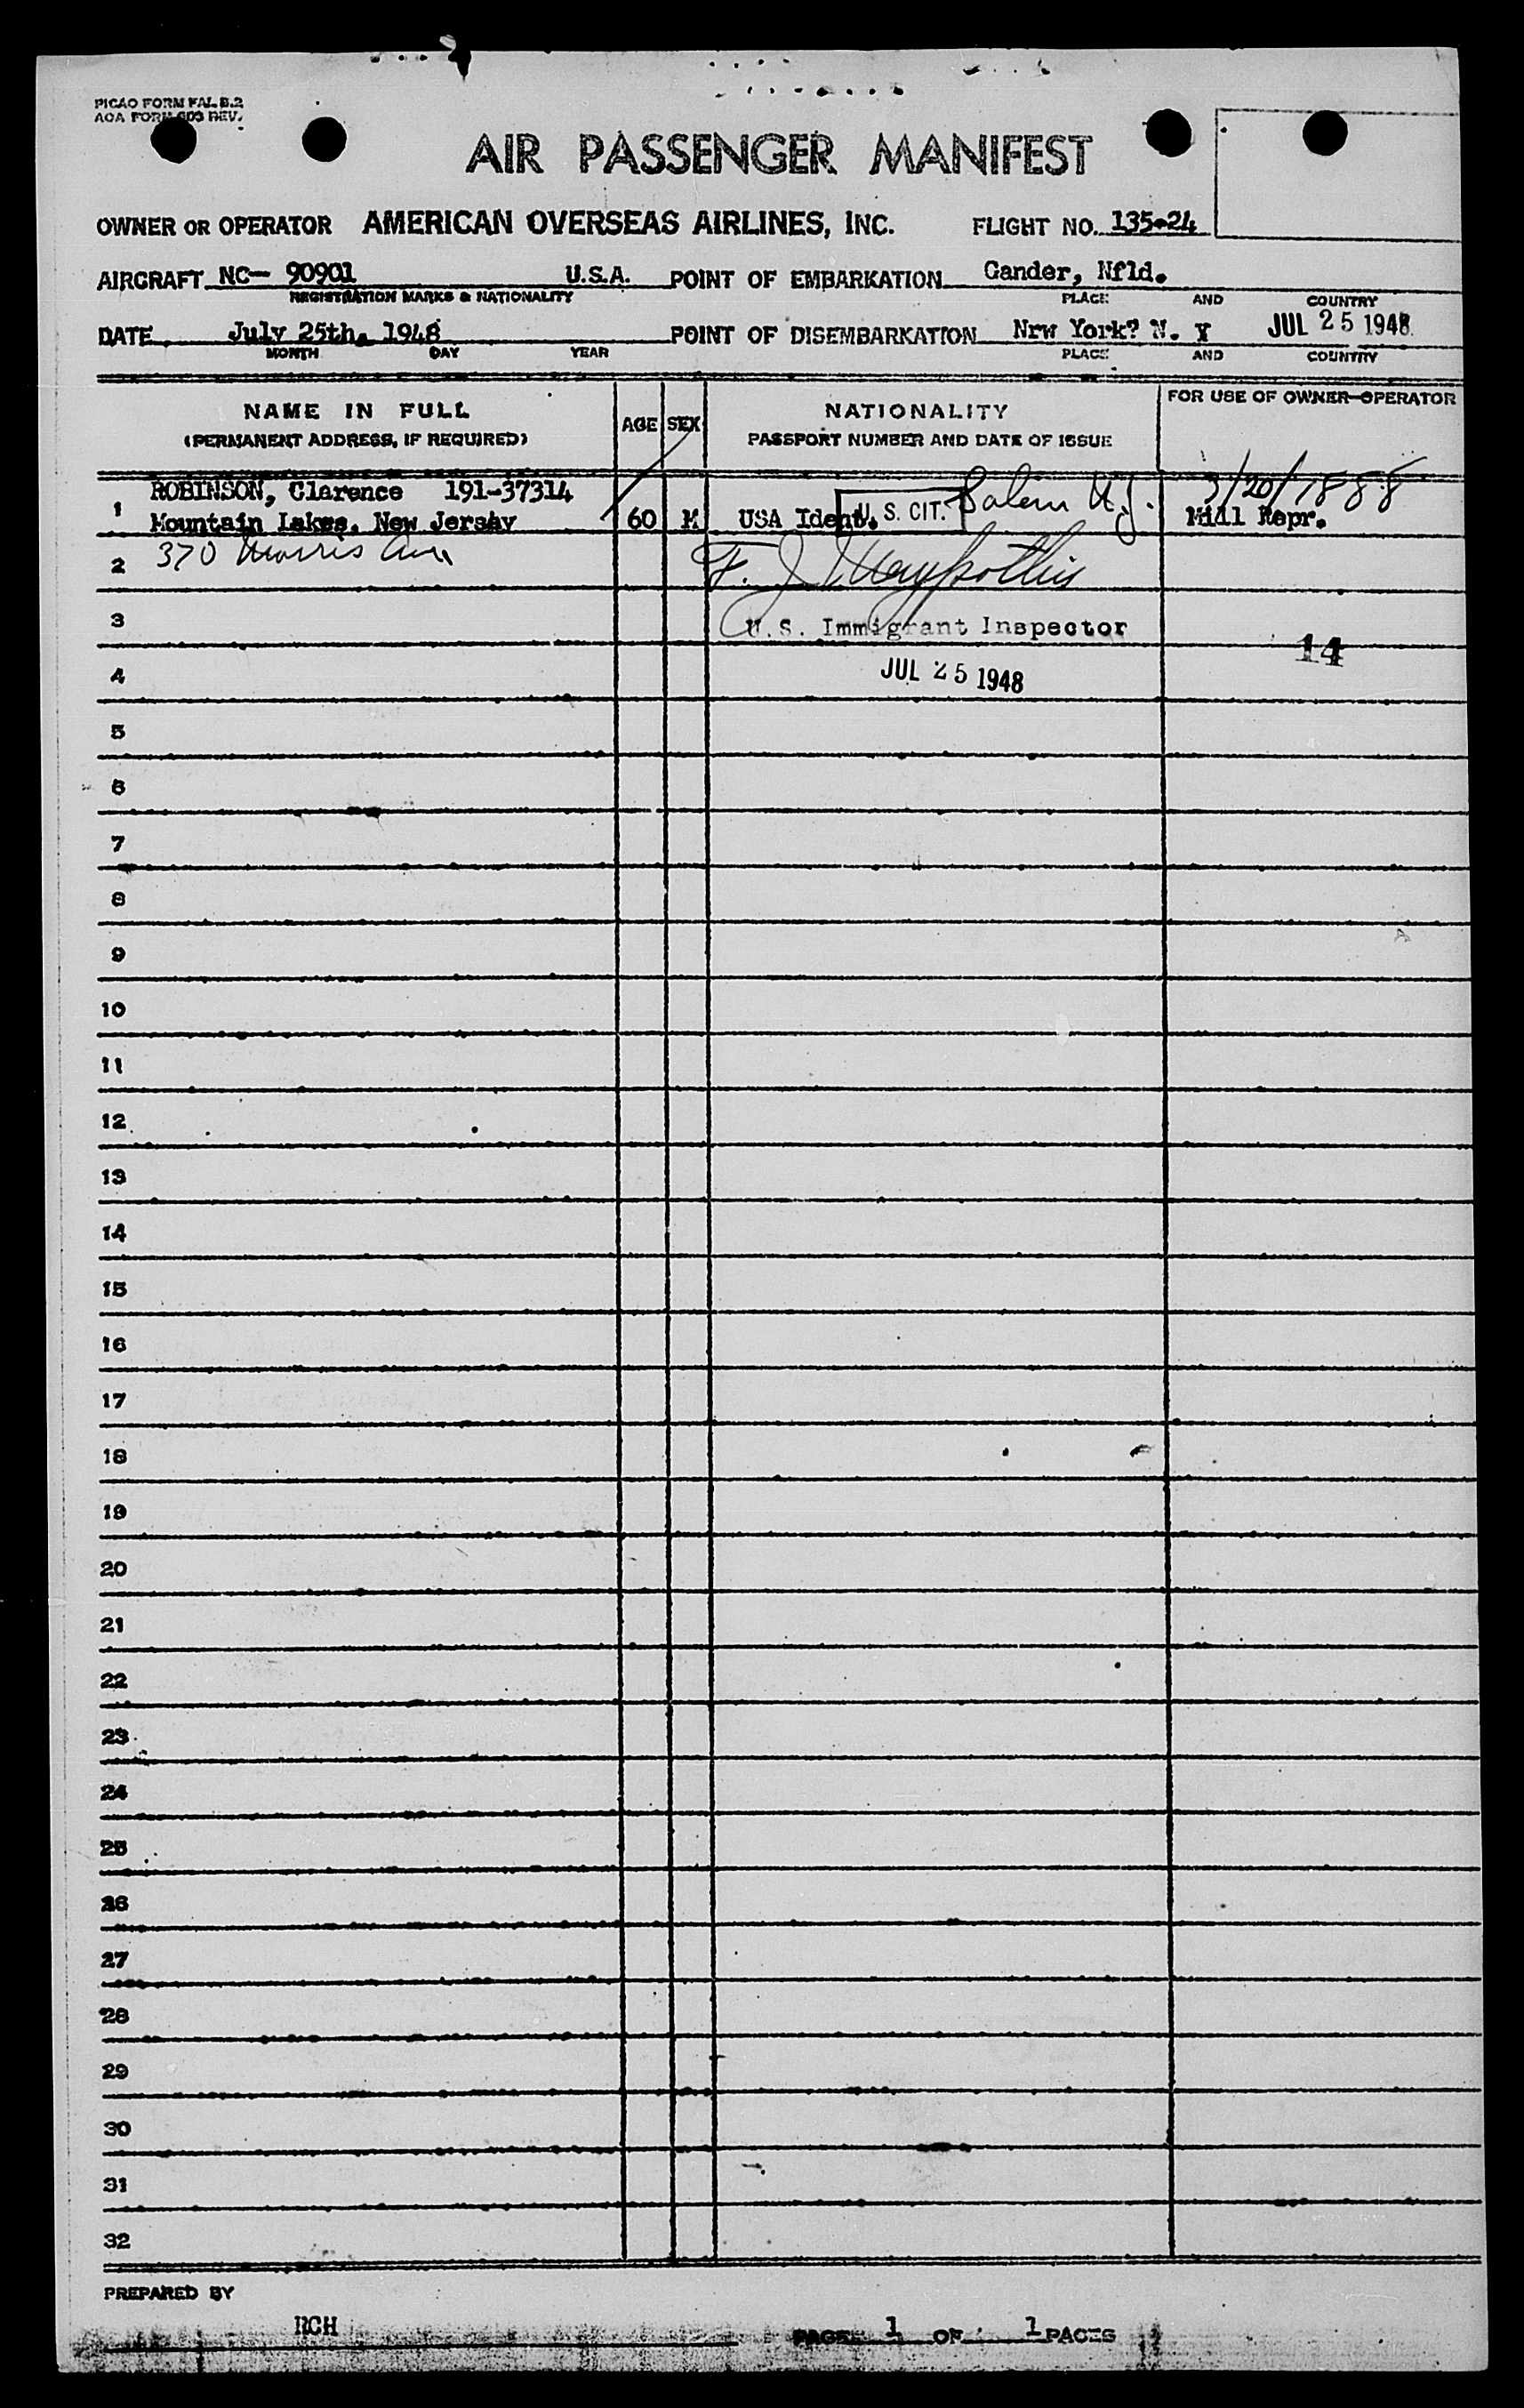 PICAO FORM FAL B.2
AOA FORM 603 REV.
AIR PASSENGER MANIFEST
OWNER OR OPERATOR AMERICAN OVERSEAS AIRLINES, INC. FLIGHT NO. 135-24
AIRCRAFT NC- 90901 U.S.A. POINT OF EMBARKATION Gander, Nfld.
REGISTRATION MARKS & NATIONALITY PLACE AND COUNTRY
DATE July 25th, 1948 POINT OF DISEMBARKATION Nrw York? N. Y JUL 25 1948
MONTH DAY YEAR PLACE AND COUNTRY
NAME IN FULL AGE SEX NATIONALITY FOR USE OF OWNER-OPERATOR
(PERMANENT ADDRESS, IF REQUIRED) PASSPORT NUMBER AND DATE OF ISSUE
ROBINSON, Clarence 191-37314 Salem N.J. 3/20/1888
1 Mountain Lakes, New Jersey 60 M USA Ident. U. S. CIT. Mill Repr.
2 370 Morris Ave F. J.
3 U.S. Immigrant Inspector
14
4 JUL 25 1948
5
6
7
8
9
10
11
12
13
14
15
16
17
18
19
20
21
22
23
24
25
26
27
28
29
30
31
32
PREPARED BY
RCH PAGE 1 OF 1 PAGES